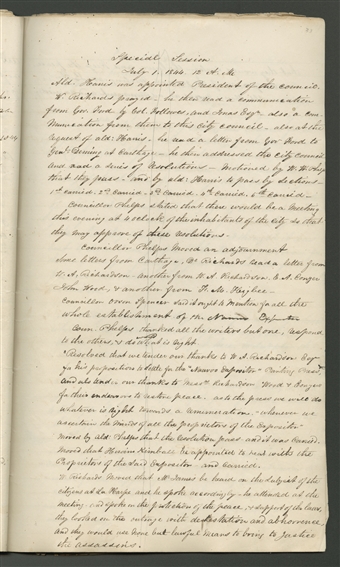 Special Session
July 1. 1844. 12 A.M.
Ald. Harris was appointed President of the council.
W. Richards prayed. he then read a communication
from Gov. Ford by Col. Fellows, and Jonas Esqr. also a com
munication from them to this City council. also at the
request of ald. Harris, he read a letter from Gov. Ford to
Genl. Deming at Carthage - he then addressed the city council
and read a series of resolutions - motioned by W. W. Phelps
that they pass. and by ald. Harris to pass by sections -
1st carried. 2d carried. 3d carried. 4th carried. 5th carried -
Councillor Phelps stated that there would be a meeting
this evening at 6 o'clock of the inhabitants of the city so that
they may approve of these resolutions.
Councillor Phelps moved an adjournment
since letters from Carthage, Dr. Richards read a letter from
W. A. Richardson. another from W. A. Richardson, E. A. Conger
John Wood, & another from F. M. Higbee
Councillor Orson Spencer said it ought to mention for all the
whole establishment of the Nauvoo Expositor
Coun. Phelps thanked all the writers but one, respond
to the others, & do what is right
"Resolved that we tender our thanks to W. A. Richardson Esqr
for his proposition to settle for the "Nauvoo Expositor" Printing Press,
and also tender our thanks to Messrs. Richardson Wood & Conger
for their endeavors to restore peace. as to the press we will do
whatever is right towards a remuneration. whenever we
ascertain the minds of all the proprietors of the Expositor
moved by ald. Phelps that the resolution pass and it was carried.
Moved that Hiram Kimball be appointed to treat with the
Proprietors of the said Expositor and carried.
W. Richards moved that Mr. James be heard on the subject of the
citizens at La Harpe and he spoke accordingly - he attended at the
meeting and spoke on the protection of the peace, & support of the laws,
they looked on the outrage with detestation and abhorrence,
and they would use none but lawful means to bring to justice
the assassins.